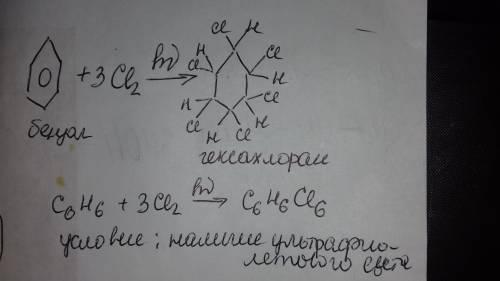 + 3Cl₂ hν →
Cl H
H Cl
Cl H
H Cl
Cl H
H Cl
бензол
гексахлоран
C₆H₆ + 3Cl₂ hν → C₆H₆Cl₆
условие: наличие ультрафио-
летового света